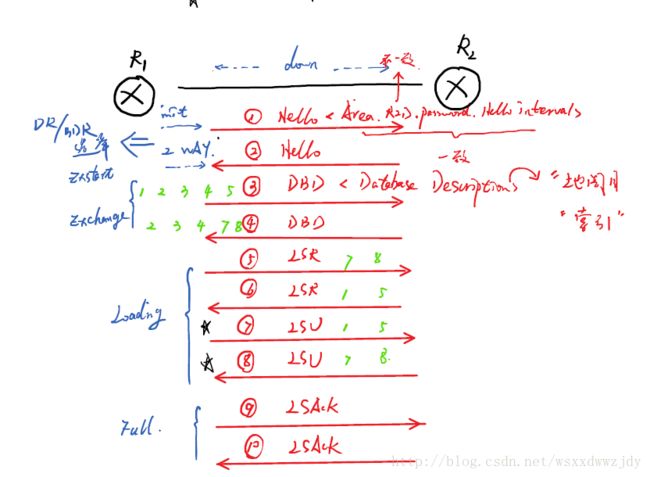 R1 down 不一致 R2
init ① Hello < Area. RID. password. Hello intervals
DR/BDR 选举 2 way ② Hello 一致
Exstart
1 2 3 4 5 ③ DBD < Database Descriptions
Exchange 2 3 4 7 8 ④ DBD "索引"
⑤ LSR 7 8
⑥ LSR 1 5
Loading ⑦ LSU 1 5
⑧ LSU 7 8
⑨ LSAck
Full. ⑩ LSAck
http://blog.csdn.net/wsxxdwwzjdy